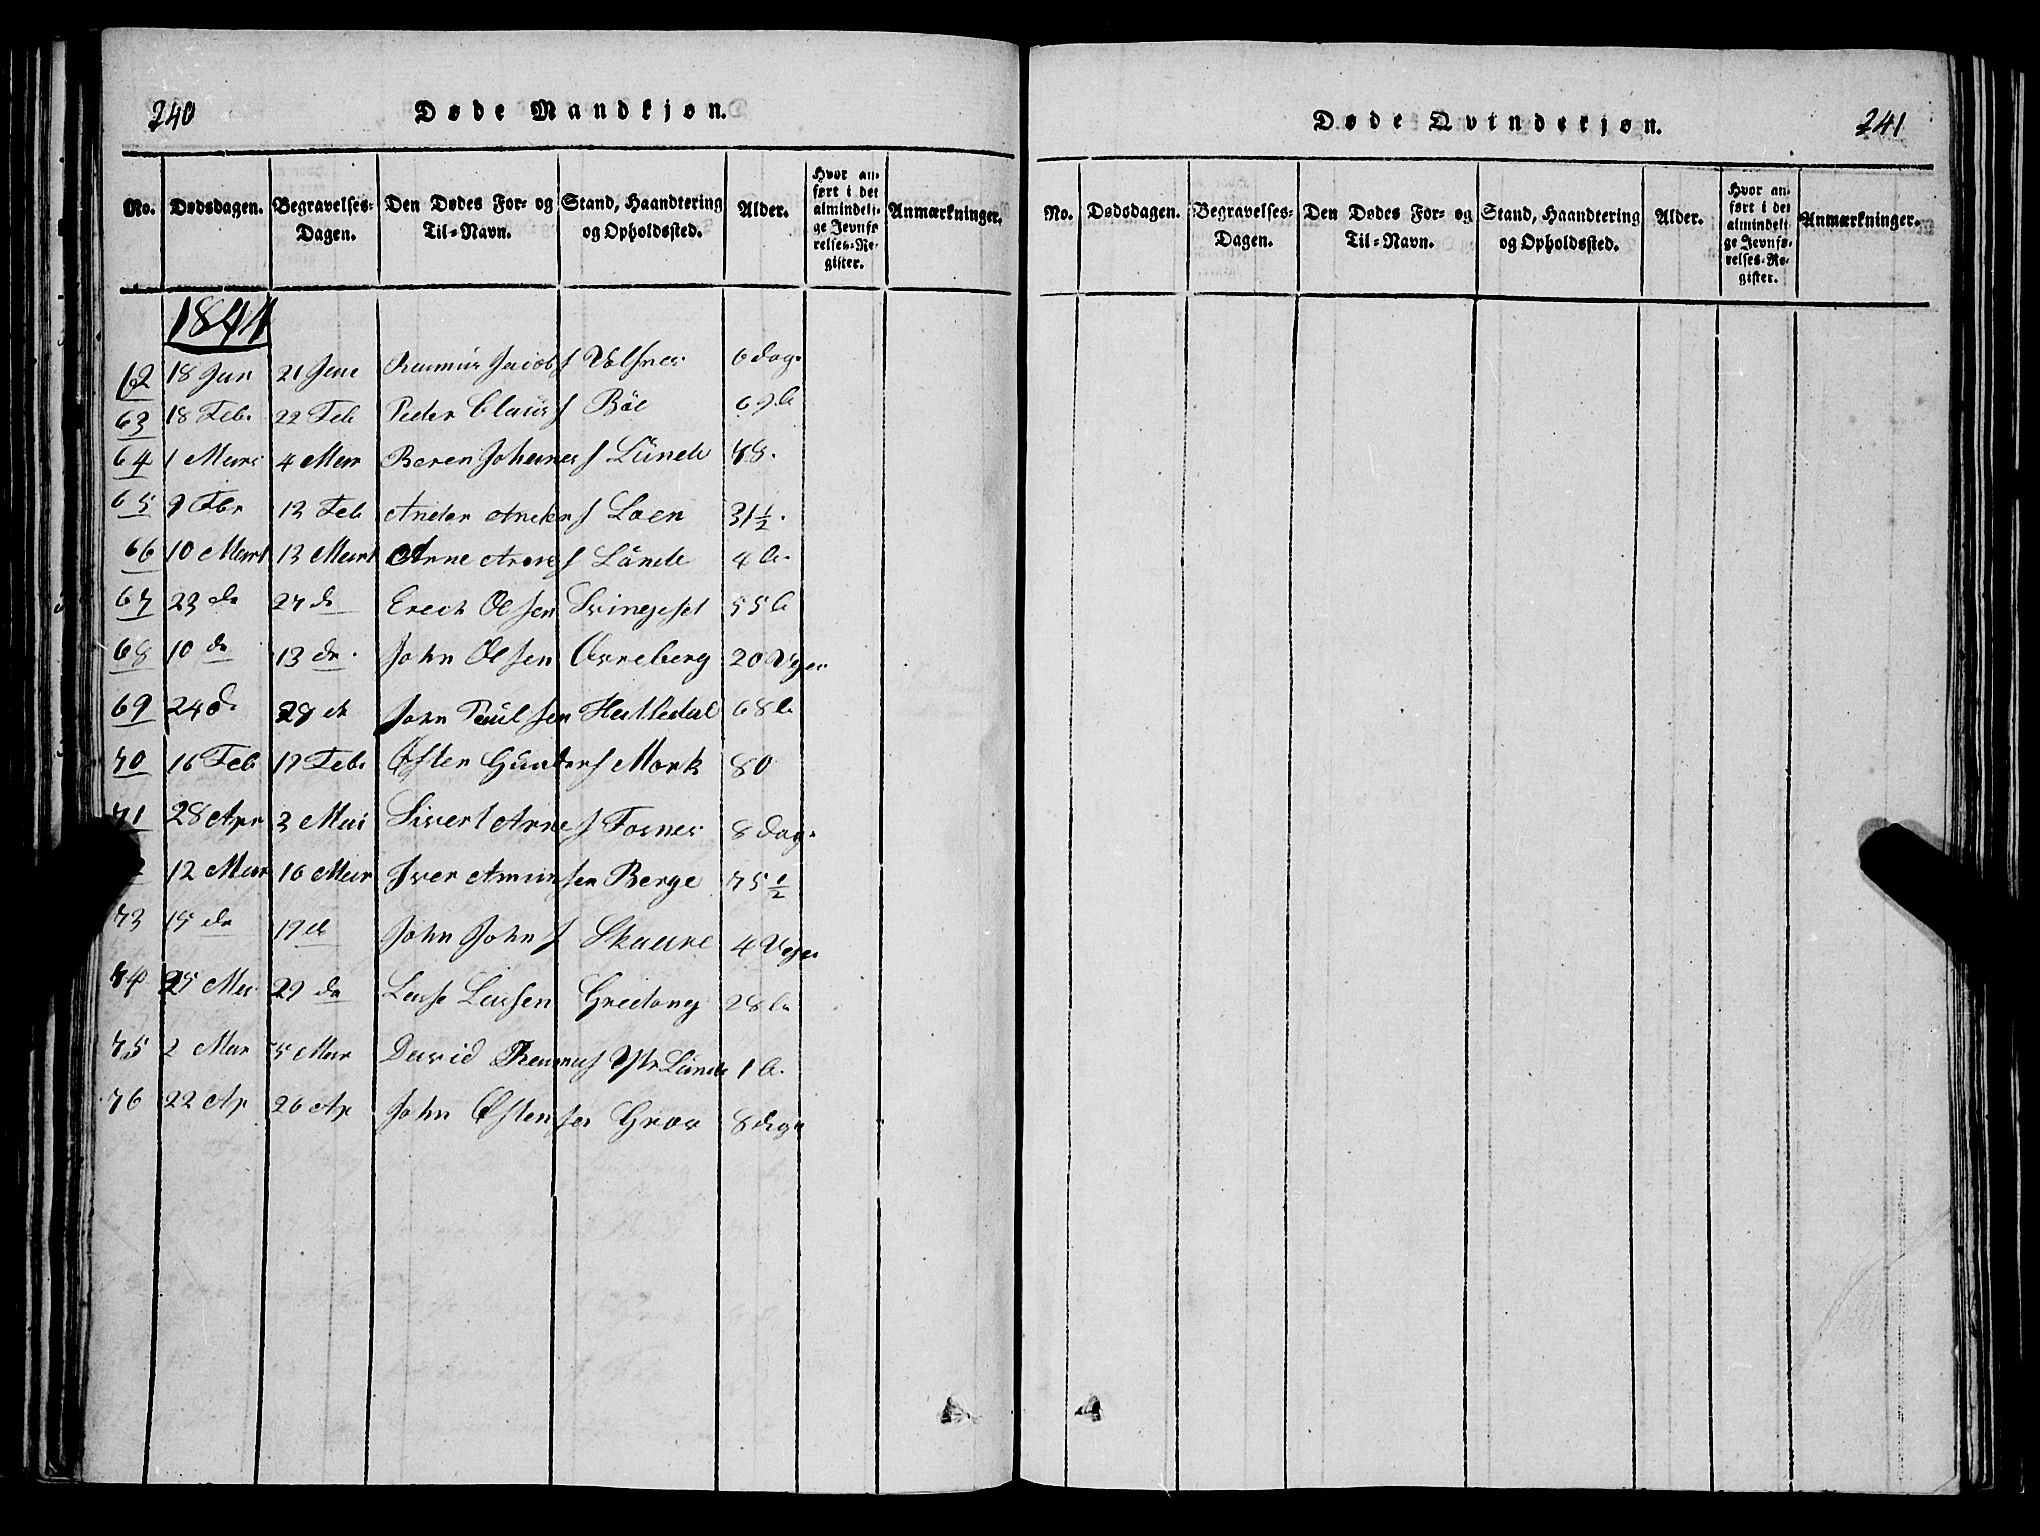 240
Døde Mandkjøn.
No. Dødsdagen. Begravelses-Dagen. Den Dødes For- og Til-Navn. Stand, Haandtering og Opholdssted. Alder. Hvor anført i det almindelige Jevnførelses-Register. Anmærkninger.
1844
62 18 Jan 21 Jan Rasmus Jacobs Welsnes 6 dag
63 18 Feb. 22 Feb Peder Claus Böe
64 1 Mars 4 Mar Johannes Lünde 48.
65 9 Febr 13 Feb Ander Anders Loen 31 1/2.
66 10 Mart 13 Mart Arne Arnes Lünde 4
67 23 do 27 do Erech Olsen Svingeset 55
68 10 do 13 do. John Olsen Övreberg 20 Uger
69 24 do 28 do John Paulsen Hatledal 68
70 16 Feb 19 Feb. Østen Gunders Mork 80
71 28 Apr 3 Mai Sivert Arnes Fosnes 8 dag.
12 Mar 16 Mar Iver Amunsen Berge 75 1/2
73 15 do 19 do John Johns Skaare 4 Uger
74 25 Mar 29 do Lasse Lassen Gredong 28
75 2 Mar 5 Mar David Rasmus Ytr Lünde 1
76 22 Ap 26 Ap John Østensen Grov 8 dage
Døde Qvindekjøn.
241
No. Dødsdagen. Begravelses-Dagen. Den Dødes For- og Til-Navn. Stand, Haandtering og Opholdssted. Alder. Hvor anført i det almindelige Jevnførelses-Register. Anmærkninger.